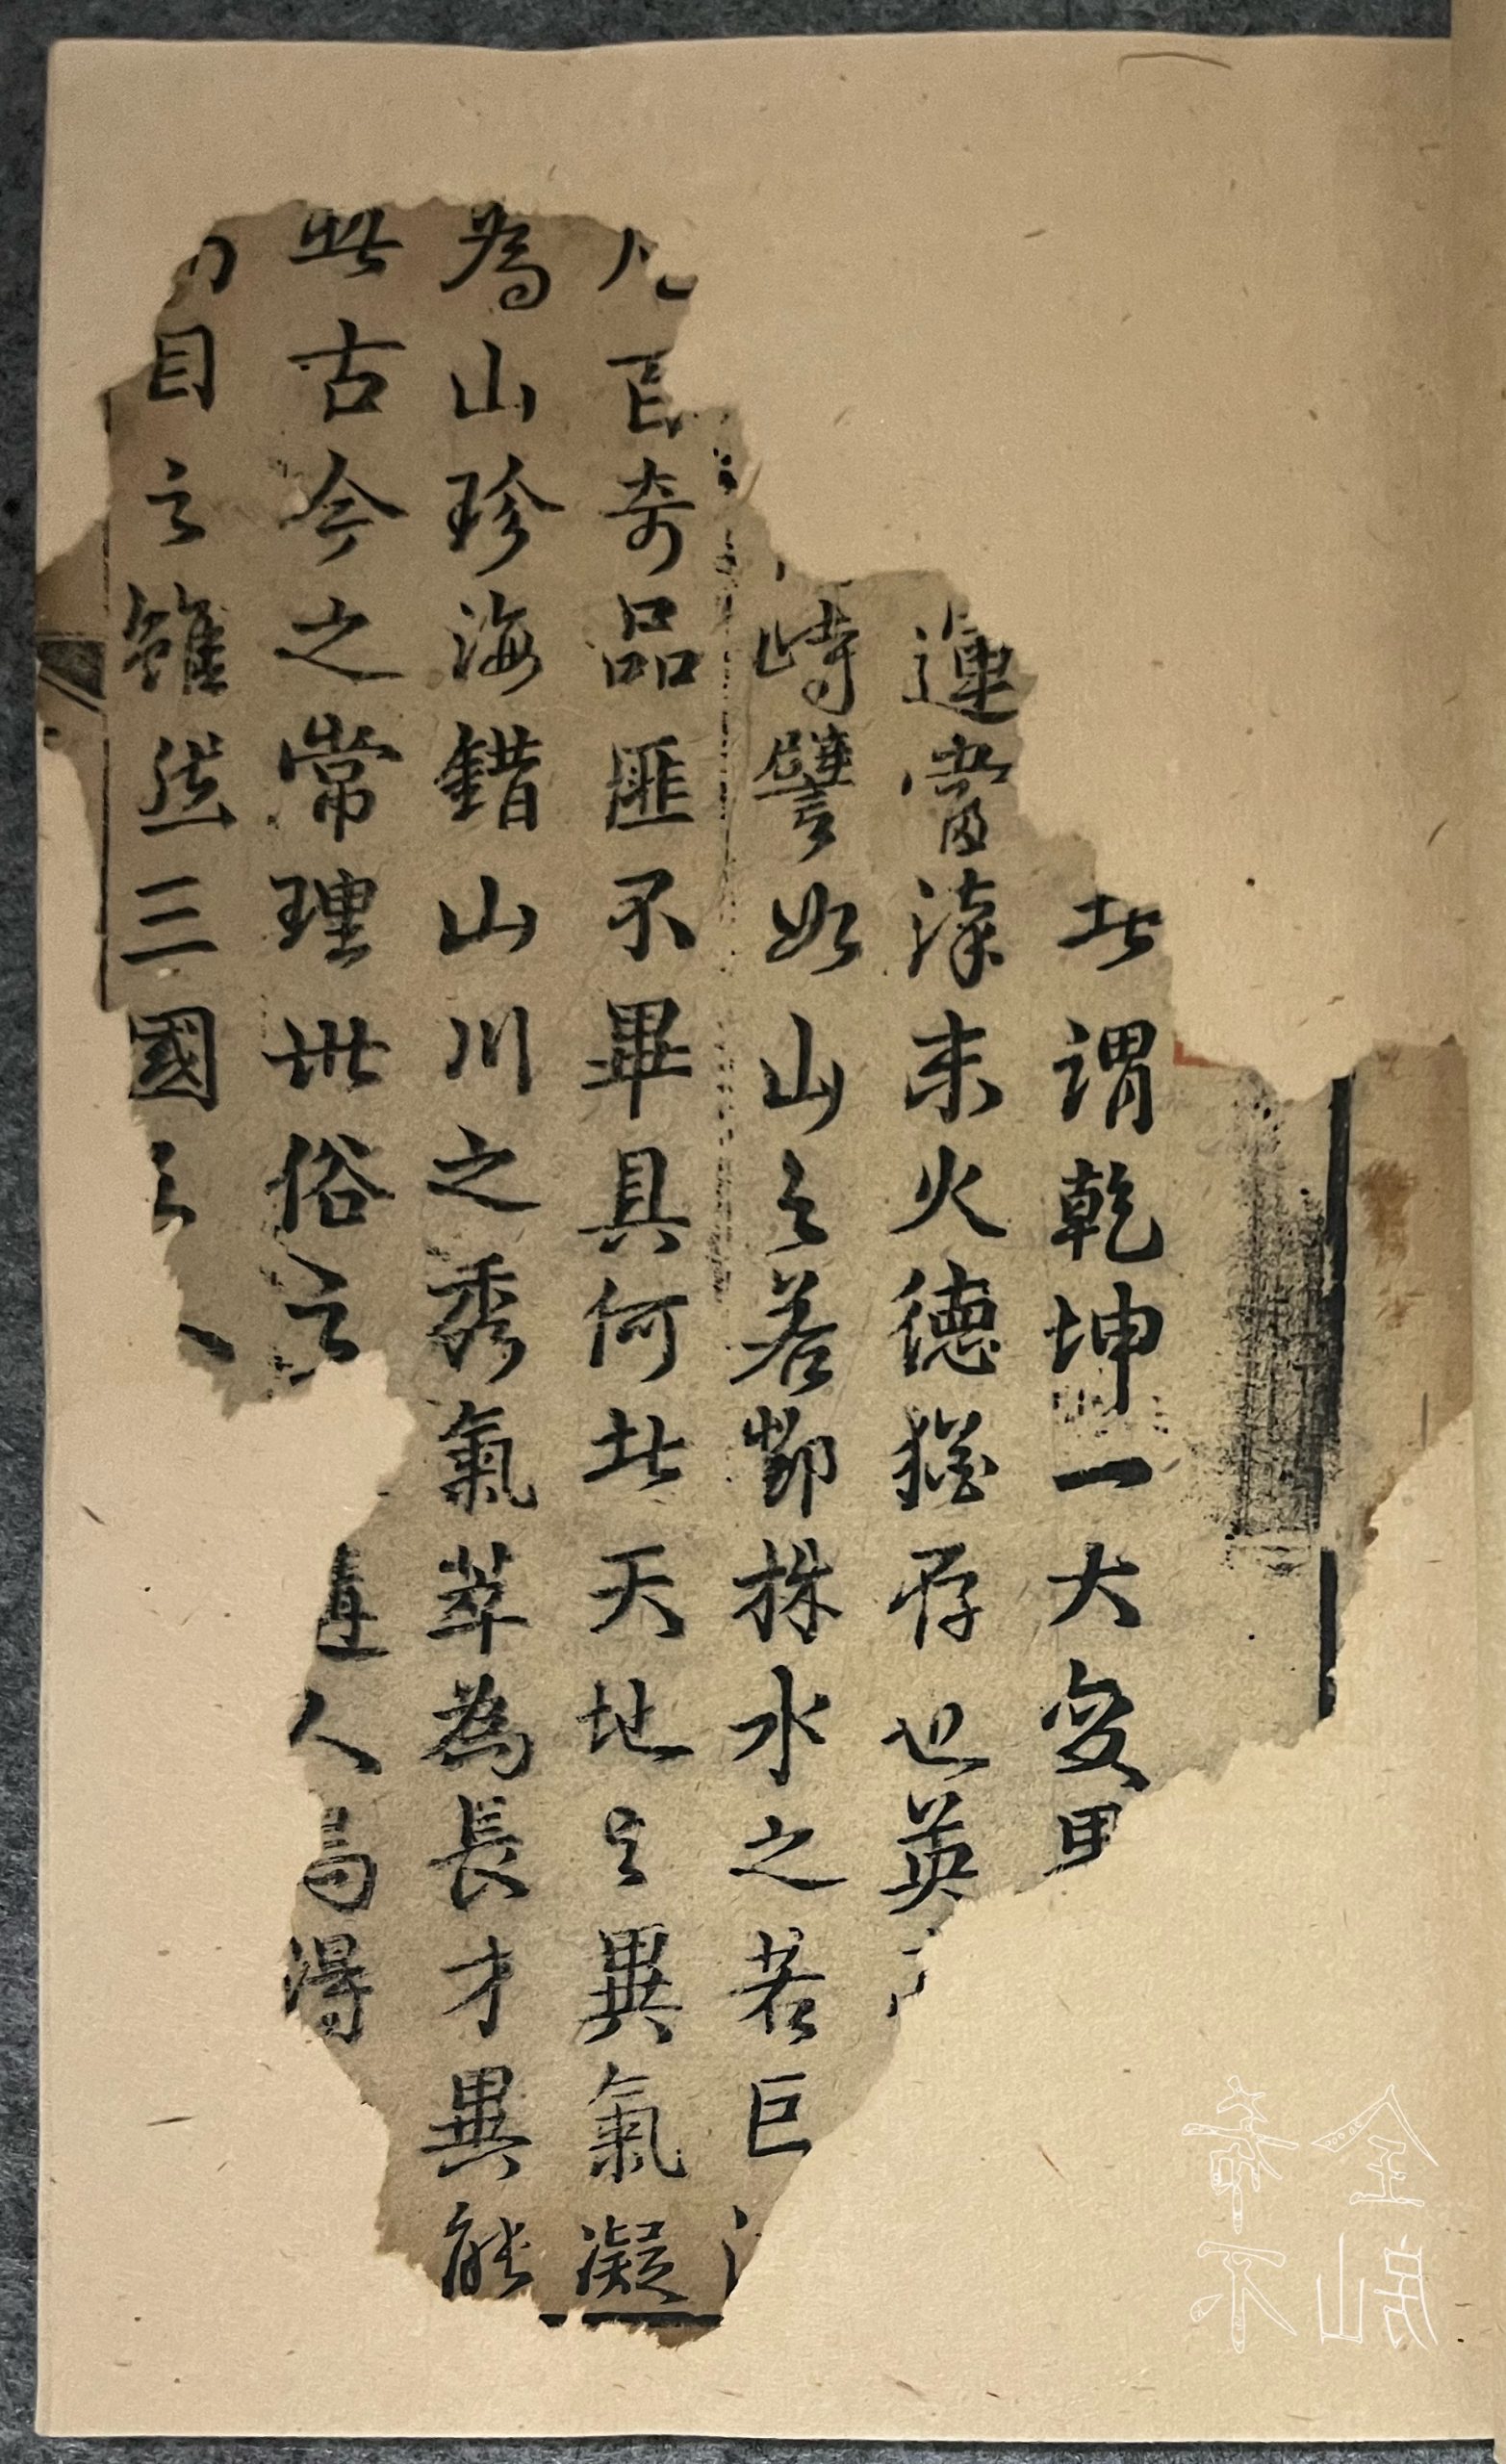 此謂乾坤一大变
運當漆末火德猶存也英
峙譬如山之若鄧株水之若巨
百奇品匪不畢具何此天地之異氣凝
為山珍海錯山川之秀氣萃為長才異能
此古今之常理世俗之人得
目之雖然三國之
全山居
希不